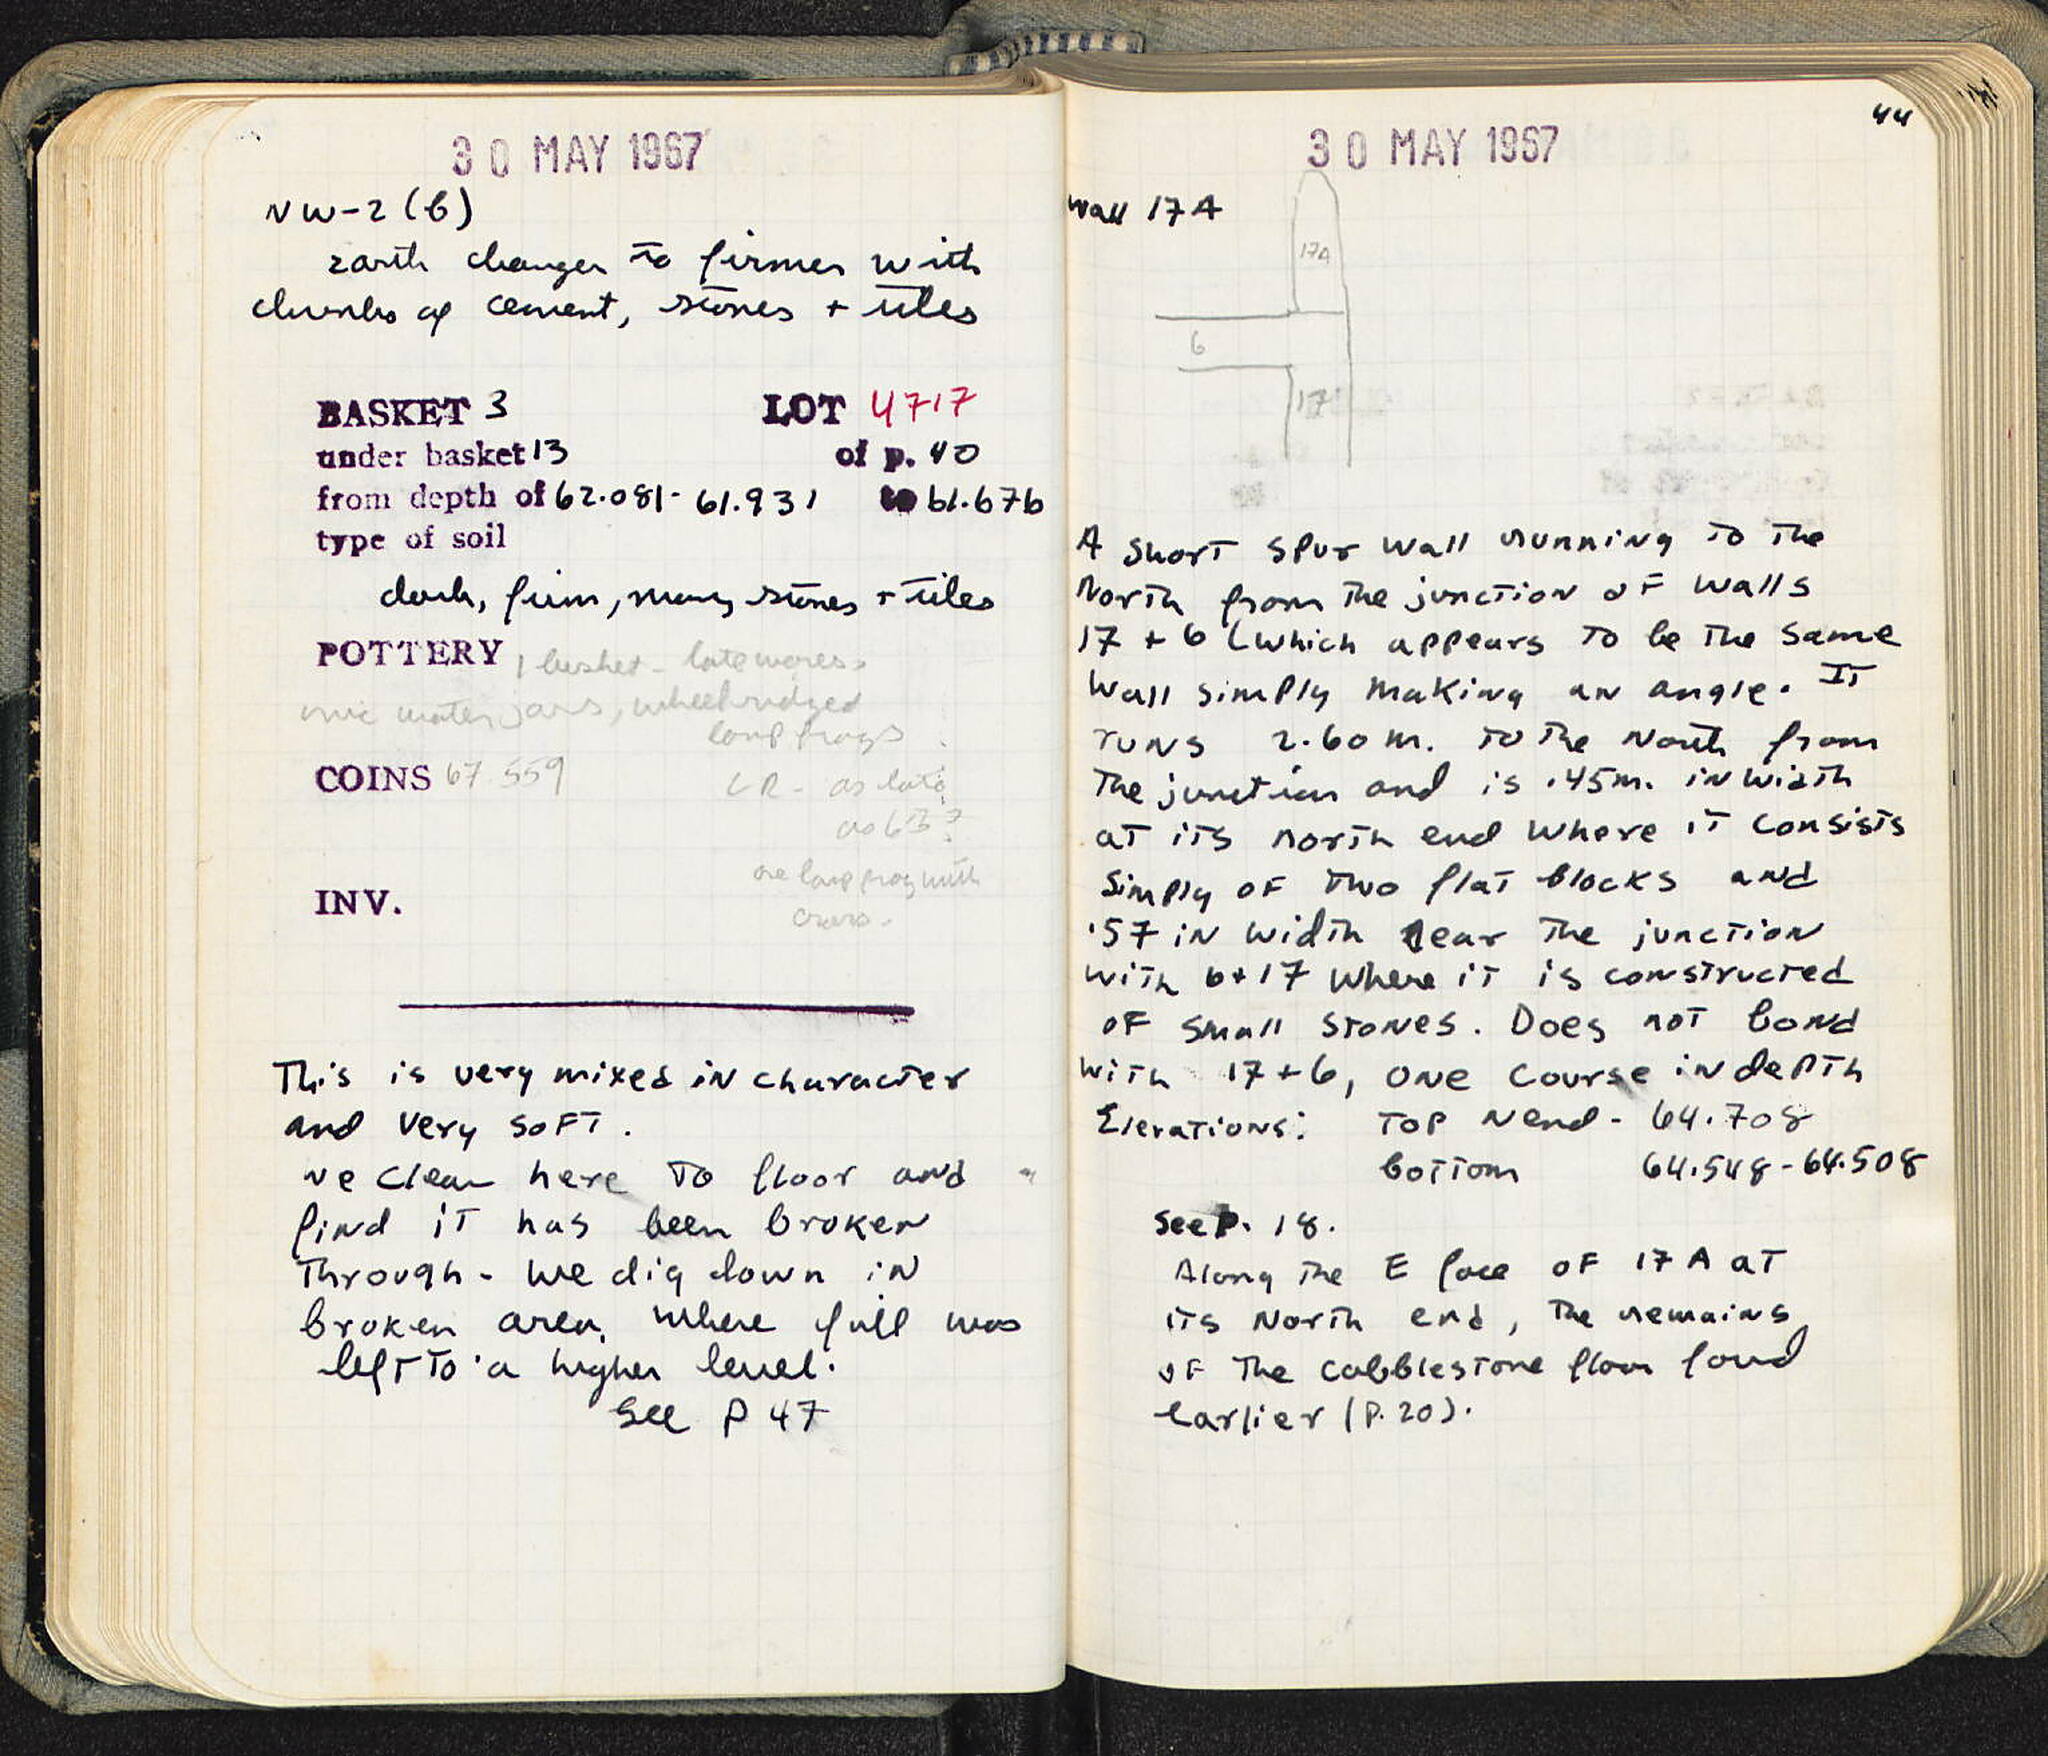 30 MAY 1967
NW-2 (b)
earth changes to firmer with
chunks of cement, stones + tiles
BASKET 3 LOT 4717
under basket 13 of p. 40
from depth of 62.081- 61.931 to 61.676
type of soil
dark, firm, many stones + tiles
POTTERY 1 basket - late wares,
mic water jars, wheelridged
lamp frags
COINS 67.559 LR - as late
as 63?
one lamp frag with
cross.
INV.
This is very mixed in character
and very soft.
We clean here to floor and
find it has been broken
through - We dig down in
broken area, where fill was
left to a higher level.
See p 47
44
30 MAY 1967
Wall 17A
17A
6
17
A short spur wall running to the
North from the junction of walls
17 + 6 (which appears to be the same
wall simply making an angle. It
runs 2.60 m. to the North from
the junction and is .45m. in width
at its north end where it consists
simply of two flat blocks and
.57 in width near the junction
with 6+17 where it is constructed
of small stones. Does not bond
with 17+6, one course in depth
Elevations: Top N end - 64.708
bottom 64.548-64.508
See P. 18.
Along the E face of 17A at
its North end, the remains
of the cobblestone floor found
earlier (P. 20).